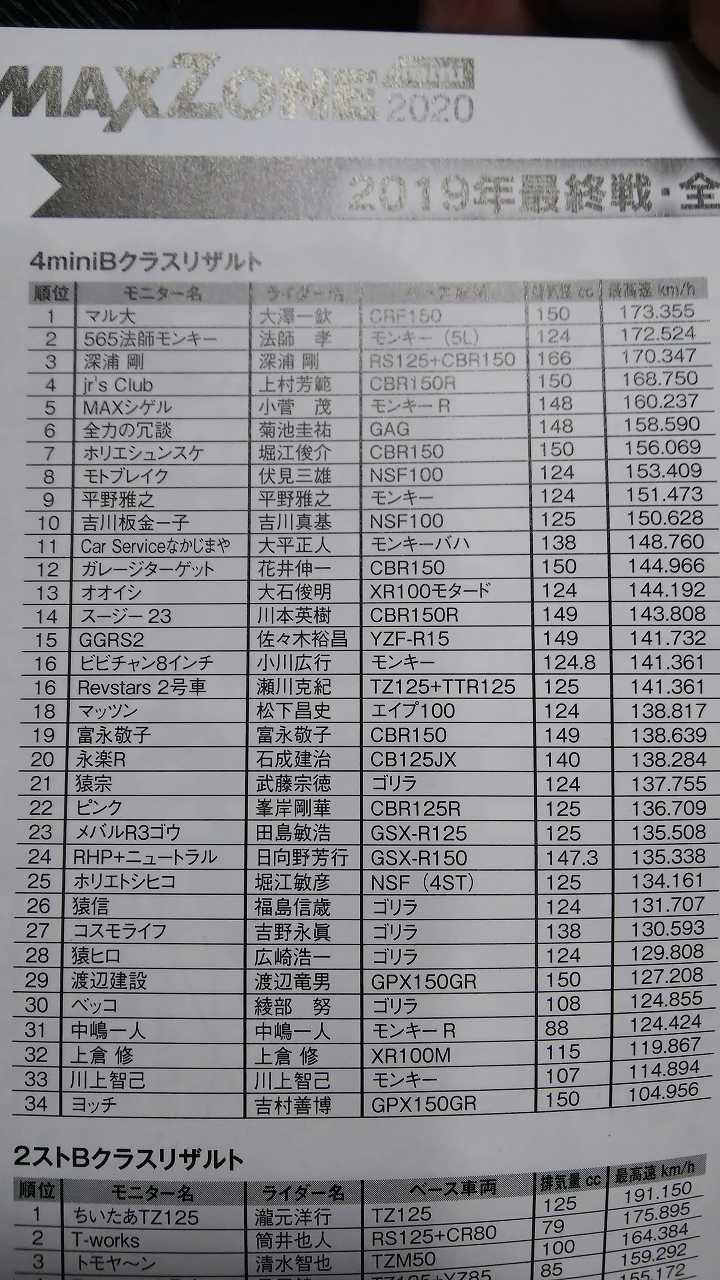 MAXZONE mini
2020
2019年最終戦・全
4miniBクラスリザルト
順位 モニター名 ライダー名 ベース車両 排気量 cc 最高速 km/h
1 マル大 大澤一欽 CRF150 150 173.355
2 565法師モンキー 法師 孝 モンキー（5L） 124 172.524
3 深浦 剛 深浦 剛 RS125+CBR150 166 170.347
4 jr's Club 上村芳範 CBR150R 150 168.750
5 MAXシゲル 小菅 茂 モンキーR 148 160.237
6 全力の冗談 菊池圭祐 GAG 148 158.590
7 ホリエシュンスケ 堀江俊介 CBR150 150 156.069
8 モトブレイク 伏見三雄 NSF100 124 153.409
9 平野雅之 平野雅之 モンキー 124 151.473
10 吉川板金一子 吉川真基 NSF100 125 150.628
11 Car Serviceなかじまや 大平正人 モンキーバハ 138 148.760
12 ガレージターゲット 花井伸一 CBR150 150 144.966
13 オオイシ 大石俊明 XR100モタード 124 144.192
14 スージー 23 川本英樹 CBR150R 149 143.808
15 GGRS2 佐々木裕昌 YZF-R15 149 141.732
16 ビビチャン8インチ 小川広行 モンキー 124.8 141.361
16 Revstars 2号車 瀬川克紀 TZ125+TTR125 125 141.361
18 マッツン 松下昌史 エイプ100 124 138.817
19 富永敬子 富永敬子 CBR150 149 138.639
20 永楽R 石成建治 CB125JX 140 138.284
21 猿宗 武藤宗徳 ゴリラ 124 137.755
22 ピンク 峯岸剛華 CBR125R 125 136.709
23 メバルR3ゴウ 田島敏浩 GSX-R125 125 135.508
24 RHP+ニュートラル 日向野芳行 GSX-R150 147.3 135.338
25 ホリエトシヒコ 堀江敏彦 NSF（4ST） 125 134.161
26 猿信 福島信歳 ゴリラ 124 131.707
27 コスモライフ 吉野永眞 ゴリラ 138 130.593
28 猿ヒロ 広崎浩一 ゴリラ 124 129.808
29 渡辺建設 渡辺竜男 GPX150GR 150 127.208
30 ベッコ 綾部 努 ゴリラ 108 124.855
31 中嶋一人 中嶋一人 モンキーR 88 124.424
32 上倉 修 上倉 修 XR100M 115 119.867
33 川上智己 川上智己 モンキー 107 114.894
34 ヨッチ 吉村善博 GPX150GR 150 104.956
2ストBクラスリザルト
順位 モニター名 ライダー名 ベース車両 排気量 cc 最高速 km/h
1 ちいたあTZ125 瀧元洋行 TZ125 125 191.150
2 T-works 筒井也人 RS125+CR80 79 175.895
3 トモヤ〜ン 清水智也 TZM50 100 164.384
TZ125+YZ85 85 159.292
155.172